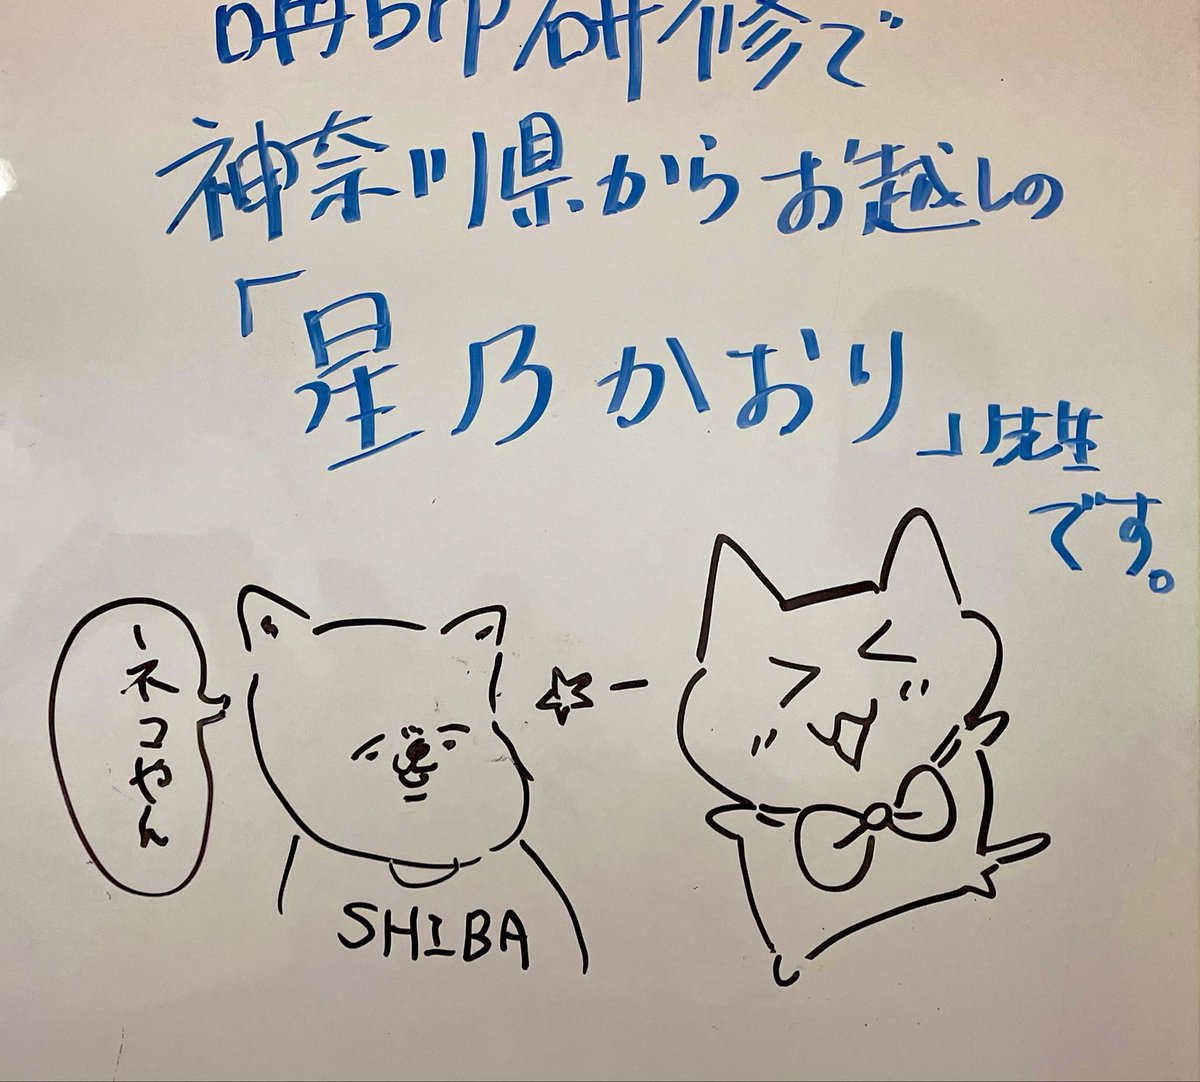 研修で
神奈川県からお越しの
「星乃かおり」先生
です。
ーネコやん
SHIBA